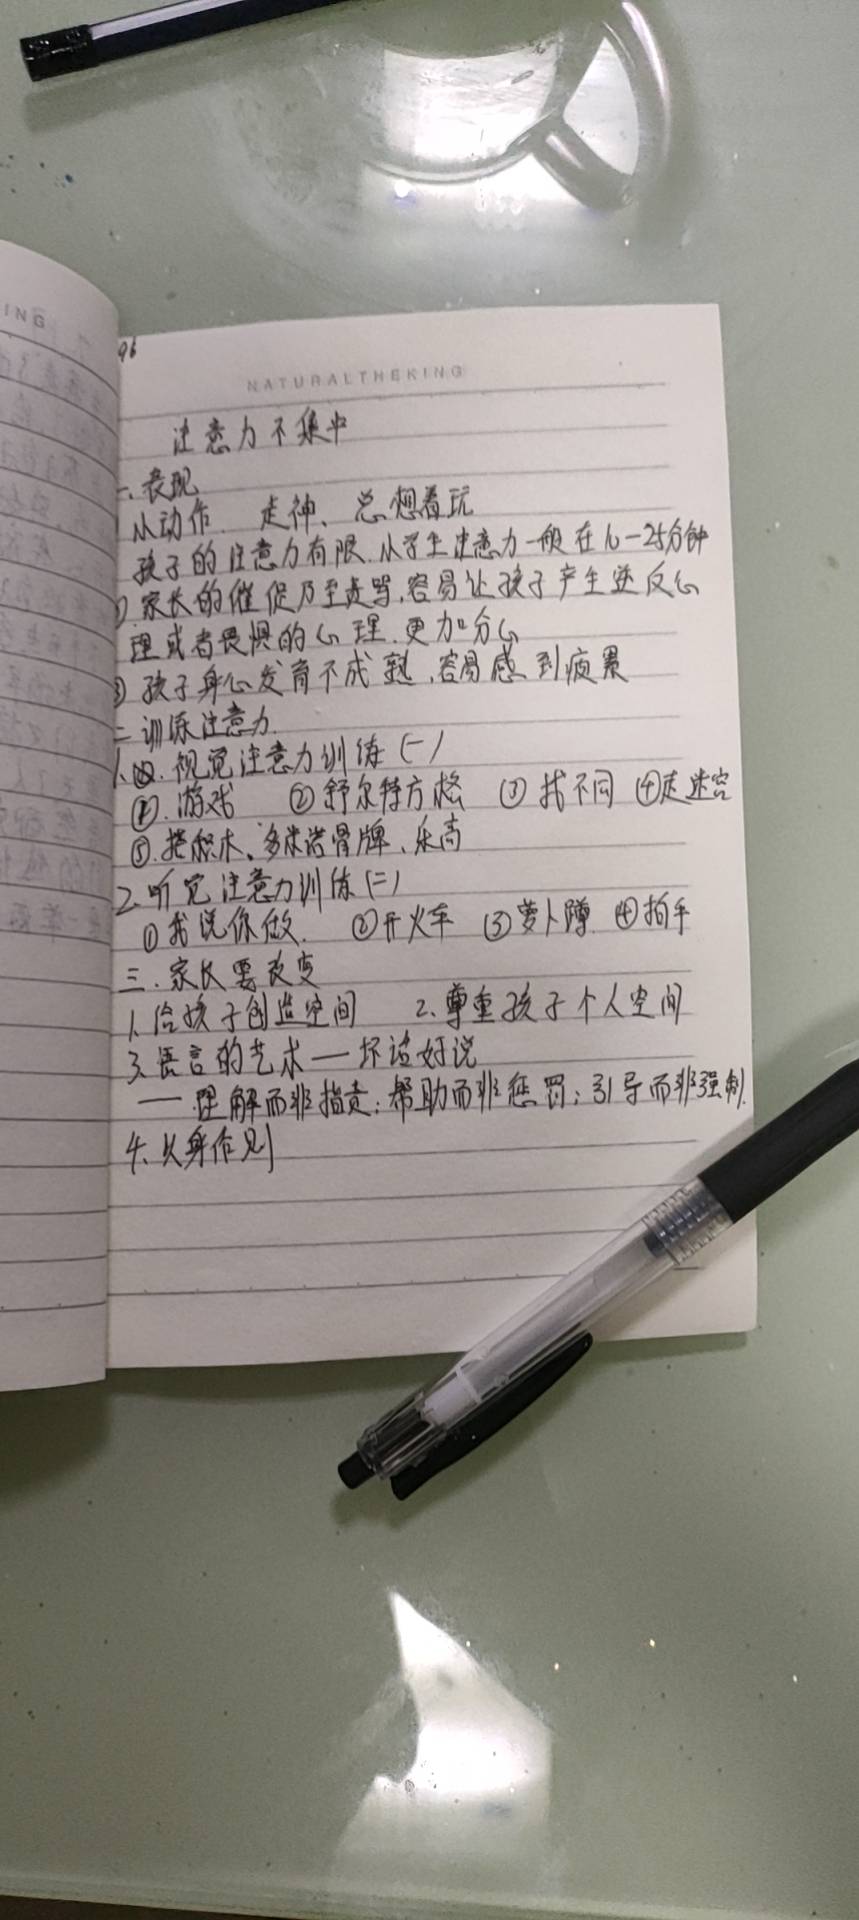 ING
96
NATURALTHEKING
注意力不集中
一、表现
小动作、走神、总想着玩
孩子的注意力有限.小学生注意力一般在10-25分钟
家长的催促乃至责骂,容易让孩子产生逆反心
理或者畏惧的心理.更加分心
③孩子身心发育不成熟,容易感到疲累
二训练注意力
1、视觉注意力训练(一)
①.游戏 ②舒尔特方格 ③找不同 ④走迷宫
⑤.搭积木、多米诺骨牌、乐高
2、听觉注意力训练(二)
①我说你做. ②开火车 ③萝卜蹲 ④拍手
三.家长要改变
1、给孩子创造空间 2.尊重孩子个人空间
3、语言的艺术—坏话好说
—理解而非指责;帮助而非惩罚;引导而非强制.
4、以身作则